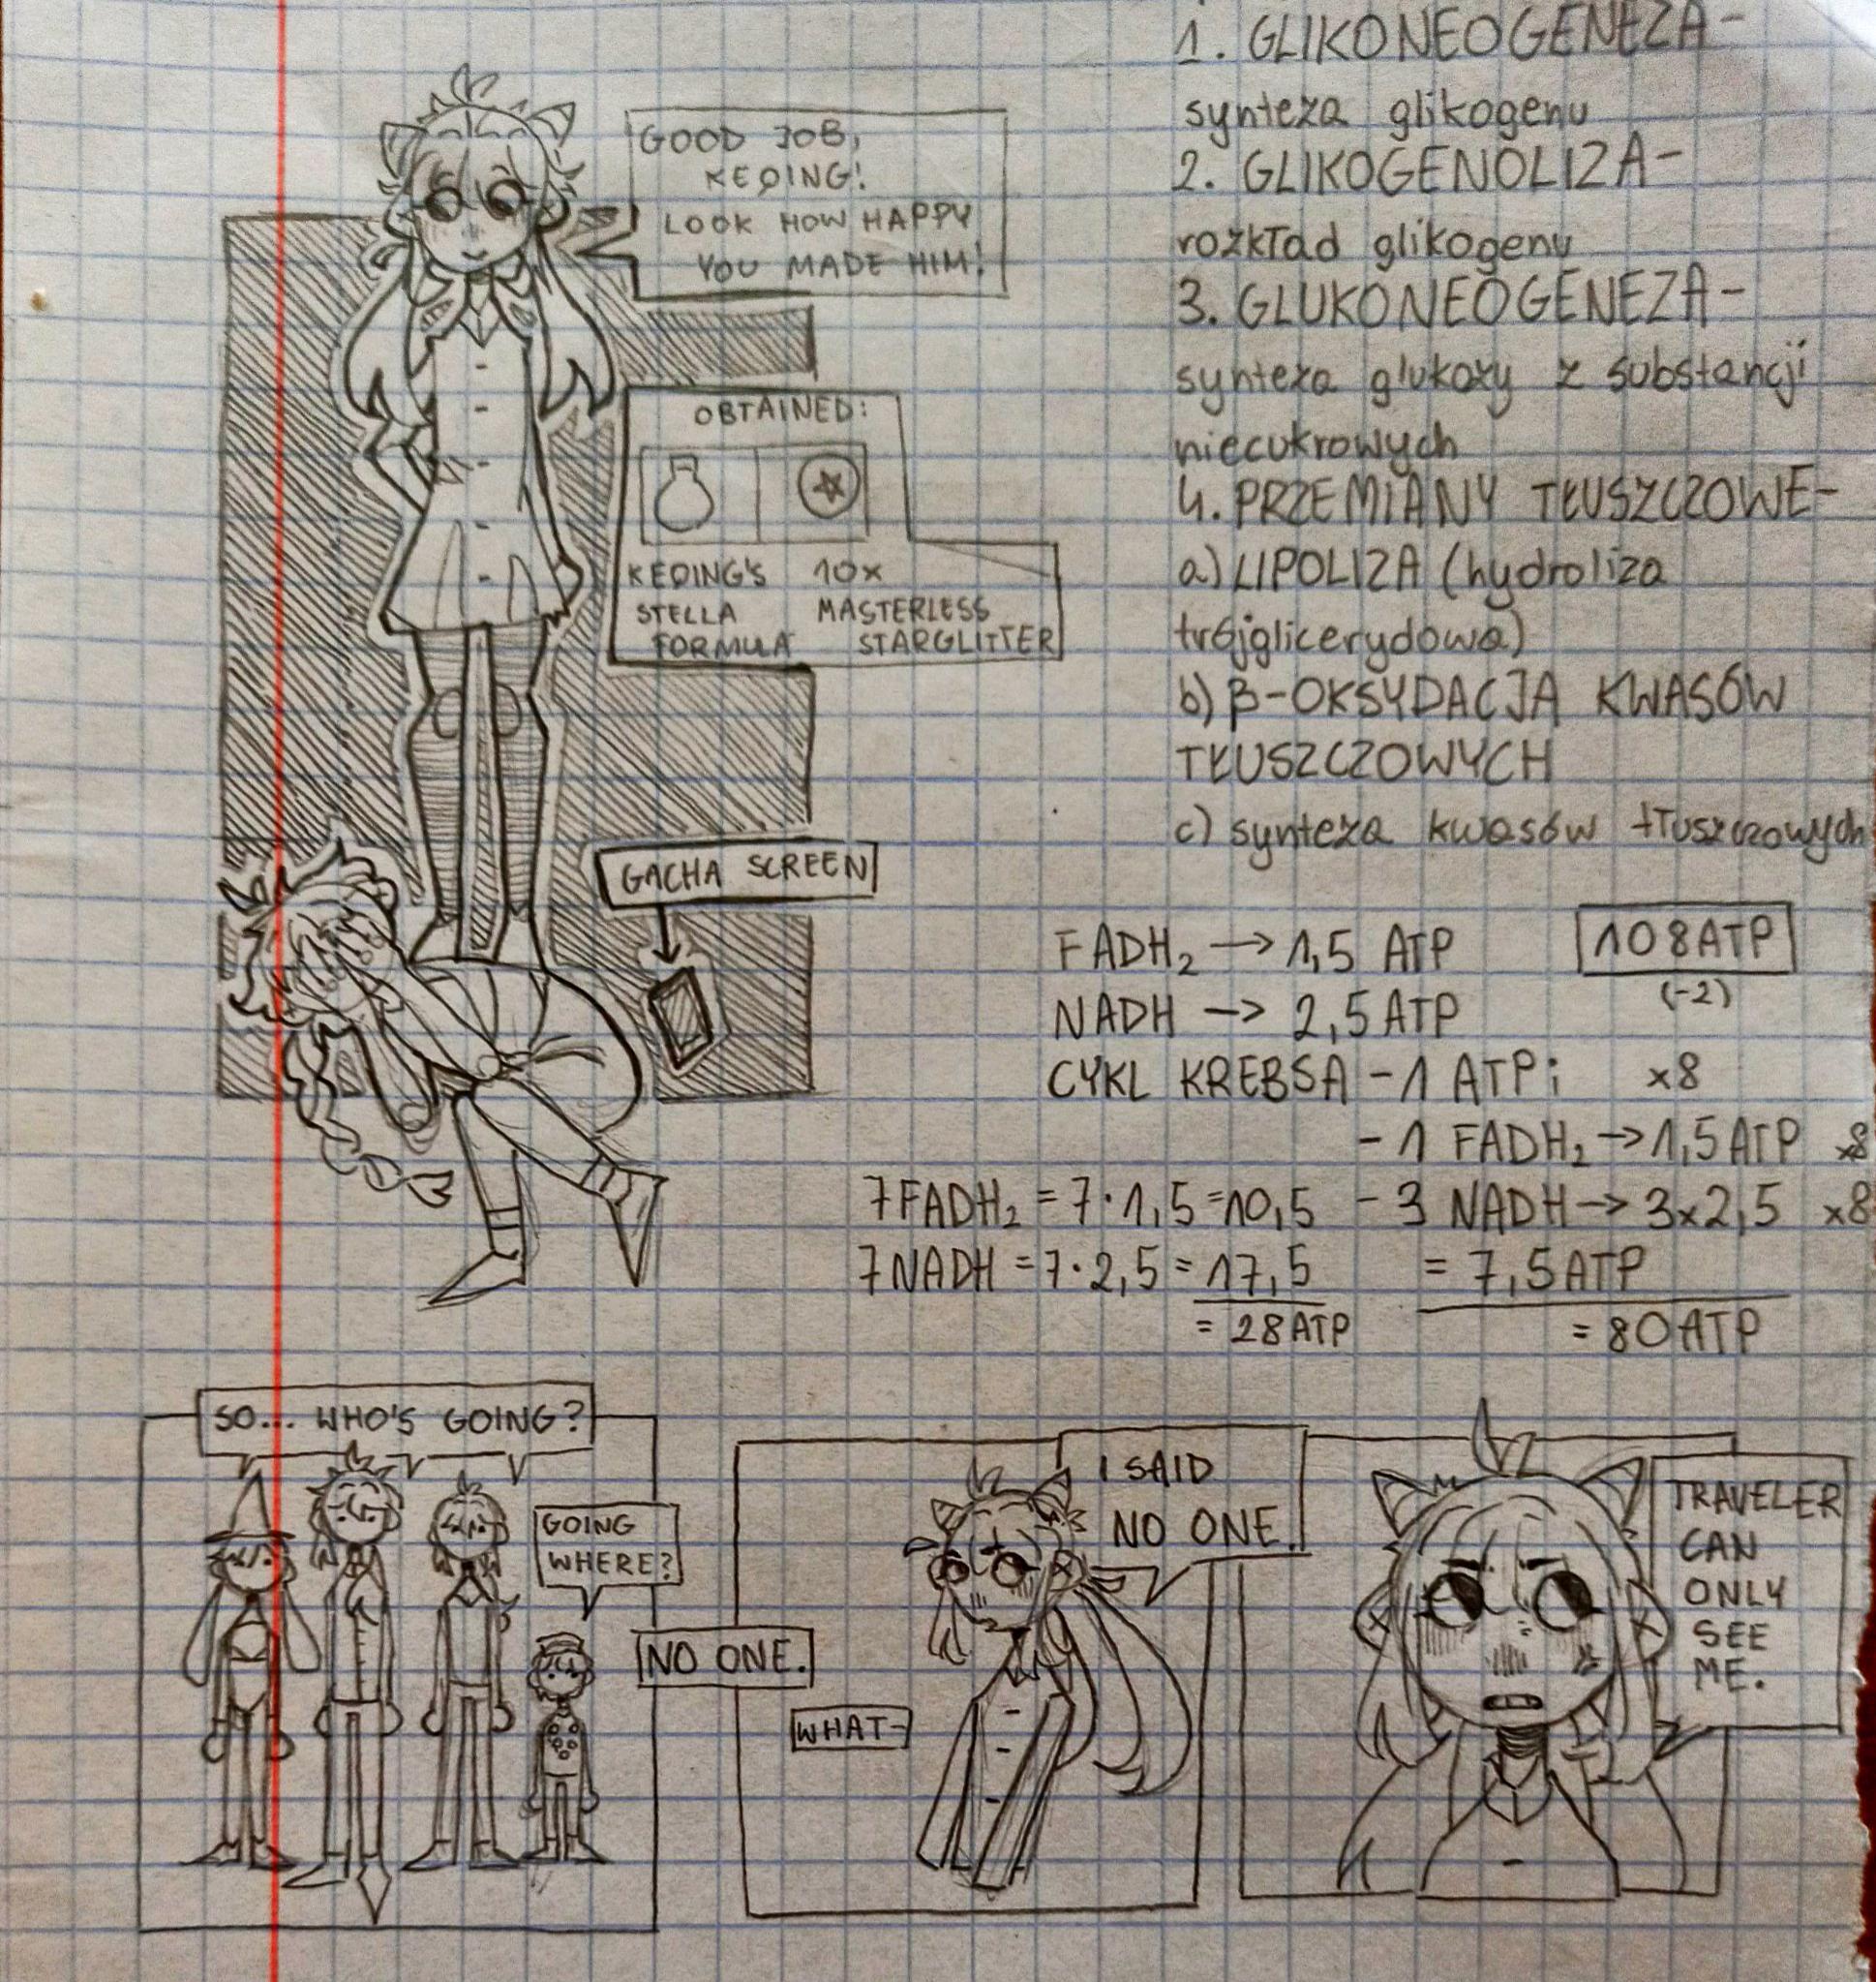 GOOD JOB,
KEQING!
LOOK HOW HAPPY
YOU MADE HIM!
OBTAINED:
KEQING'S
STELLA
FORMULA
10x
MASTERLESS
STARGLITTER
GACHA SCREEN
1. GLIKONEOGENEZA-
synteza glikogenu
2. GLIKOGENOLIZA-
rozkład glikogenu
3. GLUKONEOGENEZA-
synteza glukozy z substancji
niecukrowych
4. PRZEMIANY TŁUSZCZOWE-
a) LIPOLIZA (hydroliza
trójglicerydowa)
b) β-OKSYDACJA KWASÓW
TŁUSZCZOWYCH
c) synteza kwasów tłuszczowych
FADH₂ → 1,5 ATP
108ATP
(-2)
NADH → 2,5 ATP
CYKL KREBSA - 1 ATP; x8
- 1 FADH₂ → 1,5 ATP x8
- 3 NADH → 3x2,5 x8
= 7,5 ATP
= 80 ATP
7FADH₂ = 7·1,5 = 10,5
7NADH = 7·2,5 = 17,5
= 28ATP
SO... WHO'S GOING?
GOING
WHERE?
NO ONE.
WHAT-
I SAID
NO ONE.
TRAVELER
CAN
ONLY
SEE
ME.